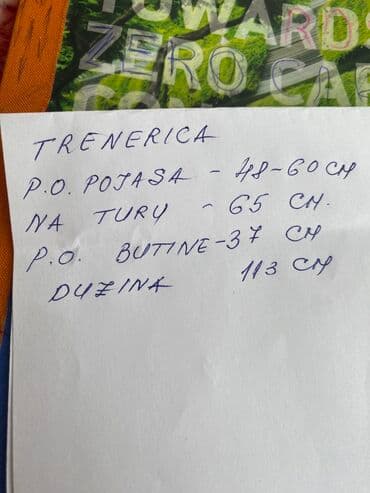 TOWARDS
ZERO CAR
TRENERICA
P.O. POJASA - 48-60 CM
NA TURU - 65 CM.
P.O. BUTINE-37 CM
DUZINA 113 CM